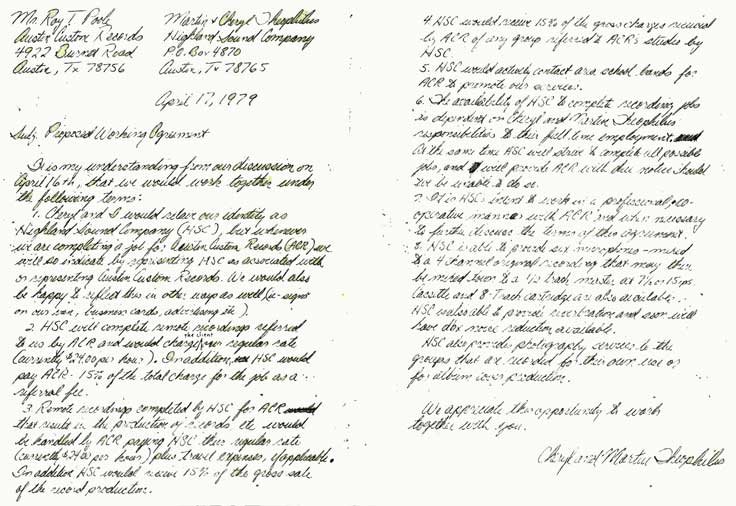 Mr. Roy T. Poole
Austin Custom Records
4922 Burnet Road
Austin, Tx 78756
Martin & Cheryl Theophilus
Highland Sound Company
P.O. Box 4870
Austin, Tx 78765
April 17, 1979
Subj: Proposed Working Agreement
It is my understanding from our discussion on
April 16th, that we would work together under
the following terms:
1. Cheryl and I would retain our identity as
Highland Sound Company (HSC), but whenever
we are completing a job for Austin Custom Records (ACR) we
will so indicate by representing HSC as associated with
or representing Austin Custom Records. We would also
be happy to reflect this in other ways as well (ie signs
on our van, business cards, advertising etc).
2. HSC will complete remote recordings referred
to us by ACR and would charge the client our regular rate
(currently $24.00 per hour). In addition, HSC would
pay ACR 15% of the total charge for the job as a
referral fee.
3. Remote recordings completed by HSC for ACR
that results in the production of records etc would
be handled by ACR paying HSC their regular rate
(currently $24.00 per hour) plus travel expenses, if applicable.
In addition HSC would receive 15% of the gross sale
of the record production.
4. HSC would receive 15% of the gross charges received
by ACR of any group referred to ACR's studios by
HSC
5. HSC would actively contact area school bands for
ACR to promote our services.
6. The availability of HSC to complete recording jobs
is dependent on Cheryl and Martin Theophilus
responsibilities to their full time employment.
At the same time HSC will strive to complete all possible
jobs, and will provide ACR with due notice should
we be unable to do so.
7. It is HSC's intent to work in a professional, co-
operative manner with ACR and when necessary
to further discuss the terms of this agreement.
8. HSC is able to provide six microphone-mixed
to a 4 channel original recording that may then
be mixed down to a 1/2 track master at 7½ or 15 ips.
Cassette and 8-Track cartridge are also available.
HSC is also able to provide reverberation and soon will
have dbx noise reduction available.
HSC also provides photography services to the
groups that are recorded for their own use or
for album cover production.
We appreciate this opportunity to work
together with you.
Cheryl and Martin Theophilus